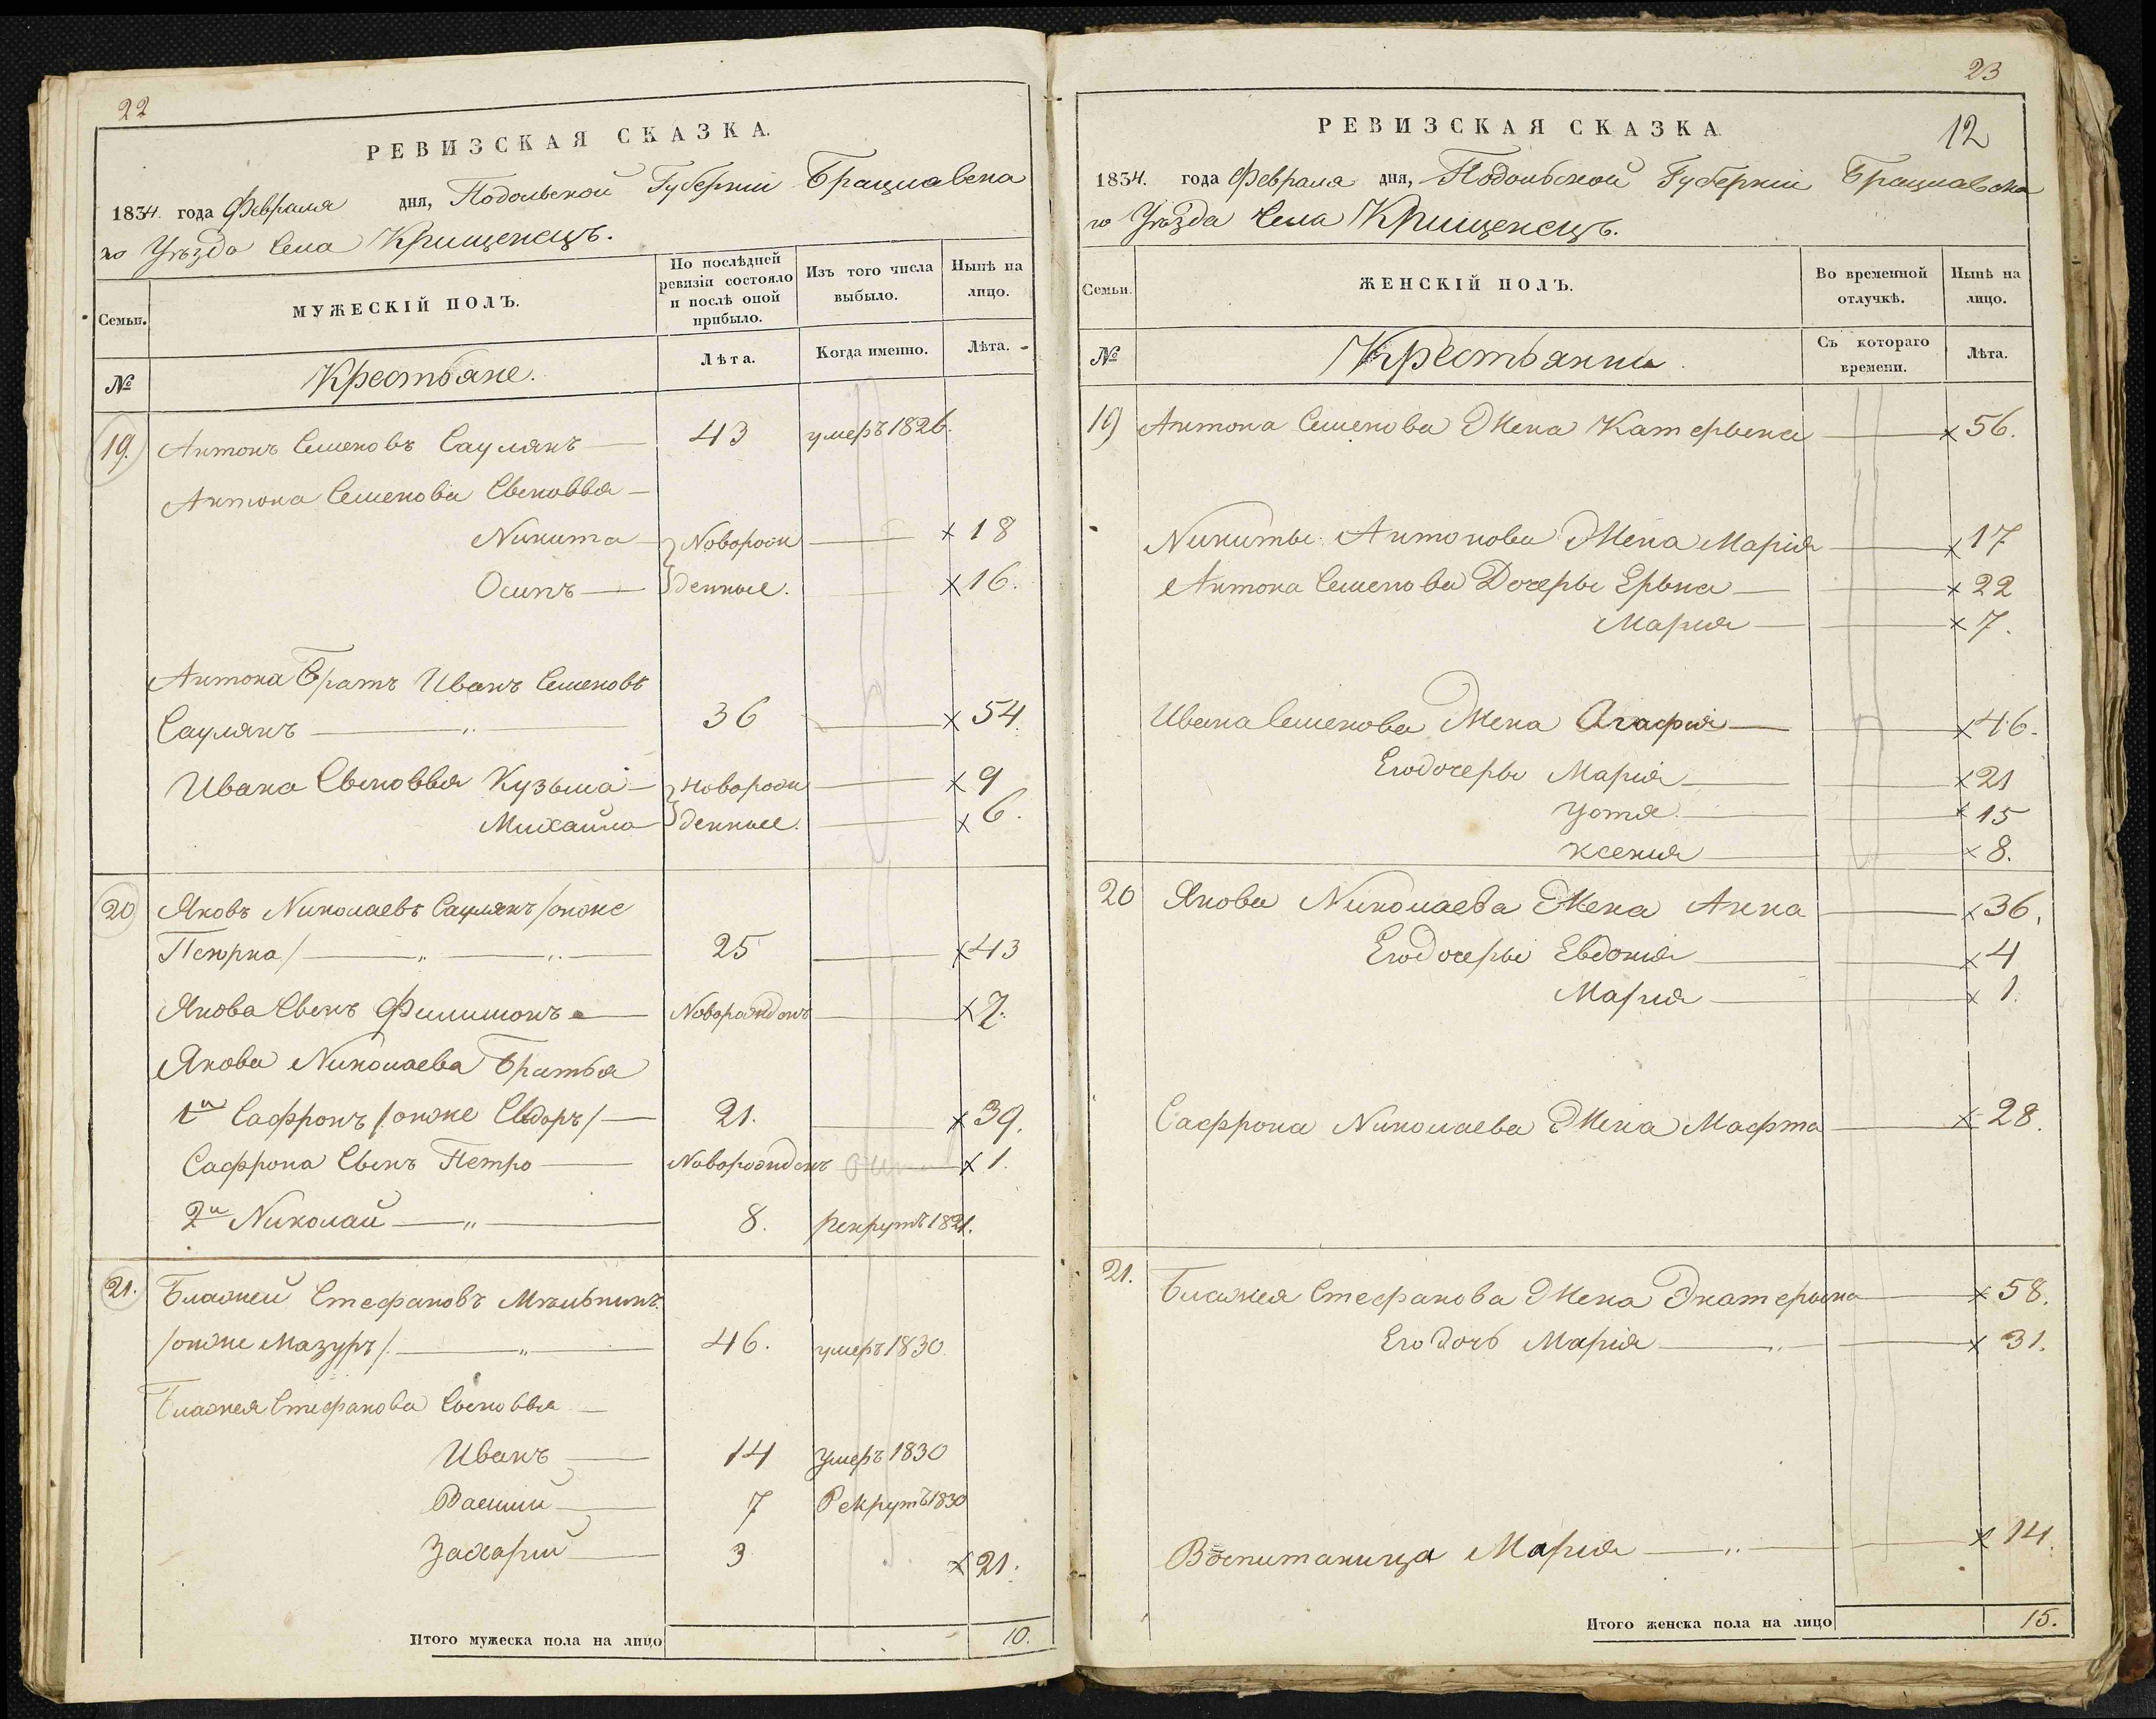 22
РЕВИЗСКАЯ СКАЗКА.
1834. года Февраля дня, Подольской Губерніи Брацлавска
го Уѣзда Села Крищенецъ.
Семьи.
МУЖЕСКІЙ ПОЛЪ.
По послѣдней
ревизіи состояло
и послѣ оной
прибыло.
Изъ того числа
выбыло.
Нынѣ на
лицо.
№
Крестьяне.
Лѣта.
Когда именно.
Лѣта.
19. Антонъ Семеновъ Саулякъ 43 умеръ 1826.
Антона Семенова Сыновья
Никита Новорож х 18
Осипъ денные. х 16.
Антона Братъ Иванъ Семеновъ
Саулякъ 36 х 54.
Ивана Сыновья Кузьма Новорож х 9
Михайло денные. х 6.
20 Яковъ Николаевъ Саулякъ /онже
25 х 43
Якова Сынъ Филимонъ Новорожденъ х 7.
Якова Николаева Братья
1й Сафронъ /онже 21. х 39.
Сафрона Сынъ Петро Новорожденъ х 1.
2й Николай 8. рекрутъ 1821.
21. Блажей Стефановъ Мѣльникъ
/онже Мазуръ/. 46. умеръ 1830.
Блажея Стефанова Сыновья
Иванъ 14 умеръ 1830
Василий 7 Рекрутъ 1830
Захарий 3 х 21.
Итого мужеска пола на лицо 10.
23
РЕВИЗСКАЯ СКАЗКА.
12
1834. года Февраля дня, Подольской Губерніи Брацлавска
го Уѣзда Села Крищенецъ.
Семьи.
ЖЕНСКІЙ ПОЛЪ.
Во временной
отлучкѣ.
Нынѣ на
лицо.
№
Крестьянки.
Съ котораго
времени.
Лѣта.
19 Антона Семенова Жена Катерына х 56.
Никиты Антонова Жена Марія х 17
Антона Семенова Дочеры Ерына х 22
Мария х 7.
Ивана Семенова Жена Агафия х 46.
Его дочеры Мария х 21
х 15
Ксения х 8.
20 Якова Николаева Жена Анна х 36.
Его дочеры Евдокия х 4
Мария х 1.
Сафрона Николаева Жена Мафта х 28.
21. Блажея Стефанова Жена Экатерына х 58.
Его дочь Марія х 31.
Воспитаница Мария х 14.
Итого женска пола на лицо 15.